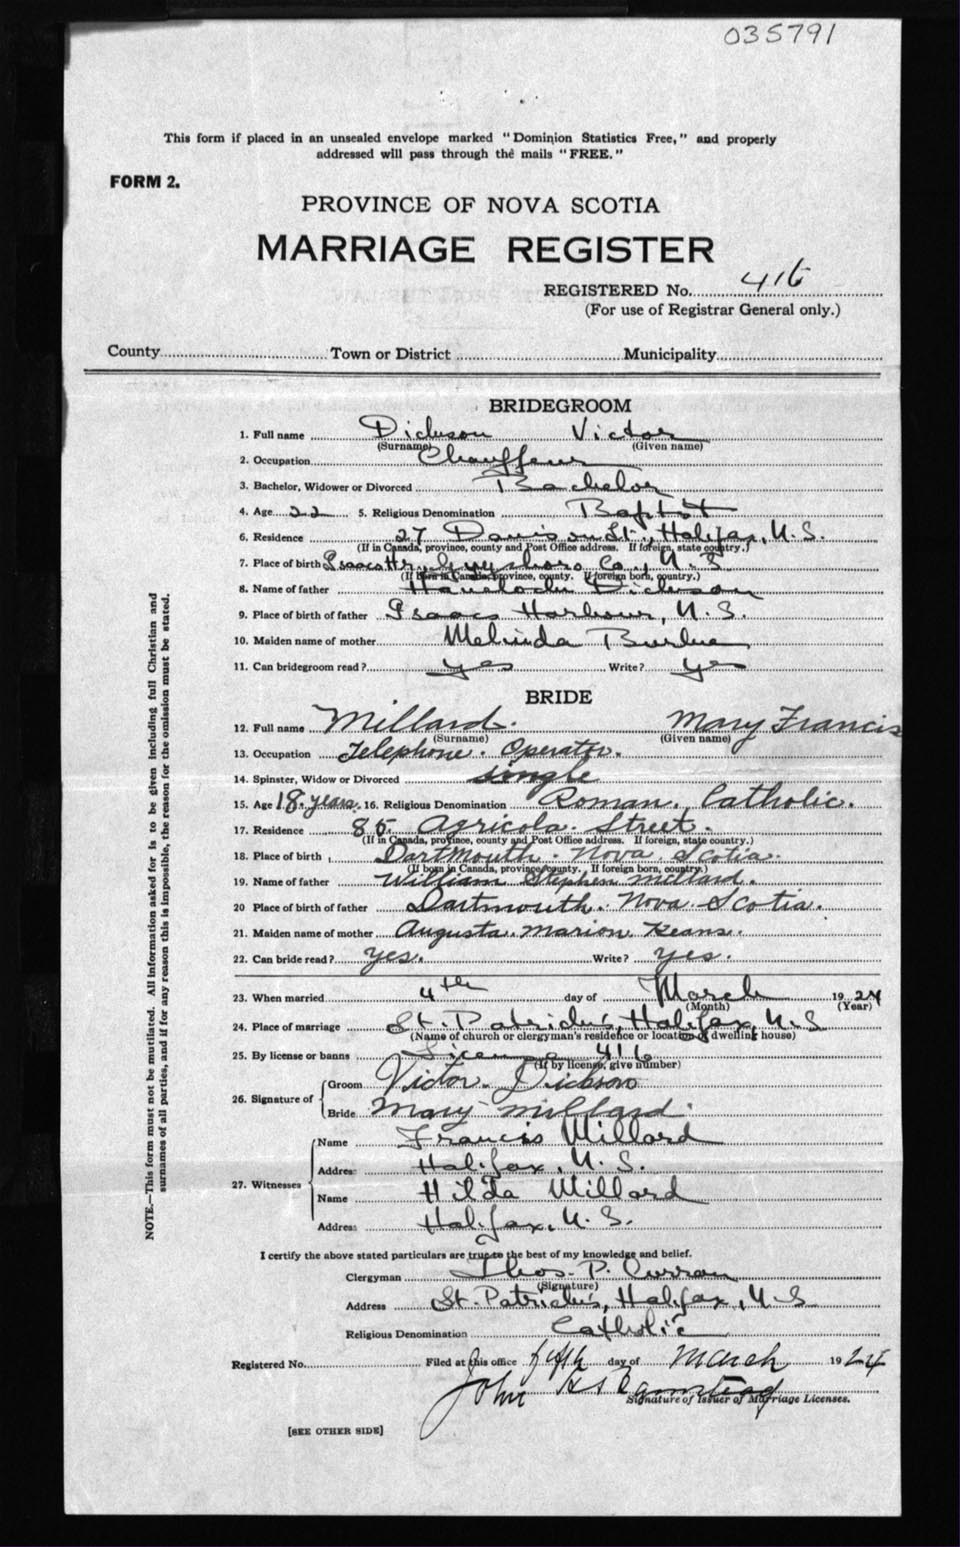 035791
This form if placed in an unsealed envelope marked "Dominion Statistics Free," and properly
addressed will pass through the mails "FREE."
FORM 2.
PROVINCE OF NOVA SCOTIA
MARRIAGE REGISTER
REGISTERED No. 416
(For use of Registrar General only.)
County Town or District Municipality
BRIDEGROOM
1. Full name Dickson Victor
(Surname) (Given name)
2. Occupation Chauffeur
3. Bachelor, Widower or Divorced Bachelor
4. Age 22 5. Religious Denomination Baptist
6. Residence 27 Davison St., Halifax, N.S.
(If in Canada, province, county and Post Office address. If foreign, state country.)
7. Place of birth Isaacs Hr., Guysboro Co., N.S
(If born in Canada, province, county. If foreign born, country.)
8. Name of father Dickson
9. Place of birth of father Isaacs Harbour, N.S.
10. Maiden name of mother Melinda Burke
11. Can bridegroom read? yes Write? yes
BRIDE
12. Full name Millard. Mary Francis
(Surname) (Given name)
13. Occupation Telephone. Operator.
14. Spinster, Widow or Divorced single
15. Age 18. years. 16. Religious Denomination Roman. Catholic.
17. Residence 85 Agricola. Street.
(If in Canada, province, county and Post Office address. If foreign, state country.)
18. Place of birth Dartmouth. Nova Scotia.
(If born in Canada, province, county. If foreign born, country.)
19. Name of father William Stephen Millard.
20 Place of birth of father Dartmouth. Nova Scotia.
21. Maiden name of mother Augusta. Marion. Keans.
22. Can bride read? Yes. Write? Yes.
23. When married 4th day of March 1924
(Month) (Year)
24. Place of marriage St. Patrick's, Halifax, N.S
(Name of church or clergyman's residence or location of dwelling house)
25. By license or banns License 416
(If by license, give number)
26. Signature of Groom Victor. Dickson
Bride Mary Millard.
27. Witnesses Name Francis Millard
Address Halifax, N.S.
Name Hilda Millard
Address Halifax, N.S.
I certify the above stated particulars are true to the best of my knowledge and belief.
Clergyman Thos. P. Curran
(Signature)
Address St. Patrick's, Halifax, N.S
Religious Denomination Catholic
Registered No. Filed at this office fifth day of March 1924
John
Signature of Issuer of Marriage Licenses.
[SEE OTHER SIDE]
NOTE.—This form must not be mutilated. All information asked for is to be given including full Christian and
surnames of all parties, and if for any reason this is impossible, the reason for the omission must be stated.